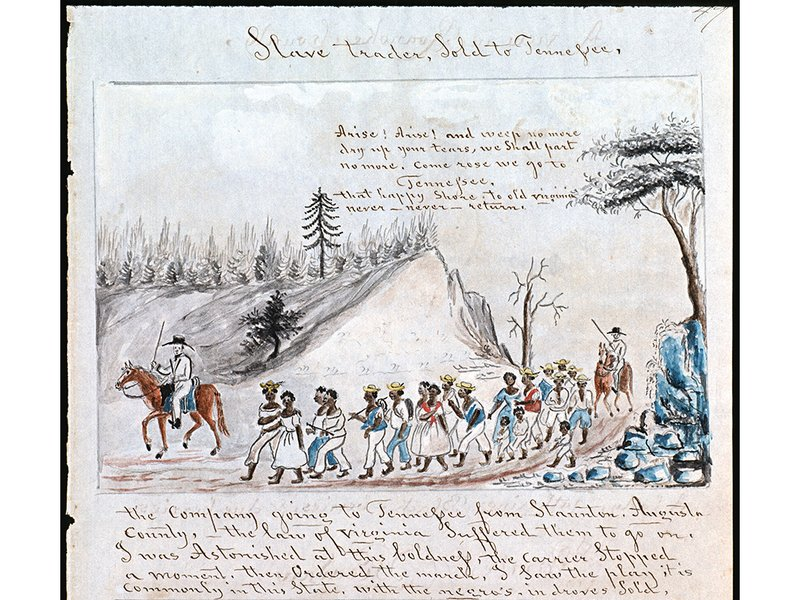 Slave trader, Sold to Tennessee,
Arise! Arise! and weep no more
dry up your tears, we Shall part
no more. Come rose we go to
Tennessee,
that happy Shore, to old virginia
never — never — return.
the Company going to Tennessee from Staunton. Augusta
County, — the law of virginia Suffered them to go on.
I was Astonished at this boldness, the carrier Stopped
a moment. then Ordered the march, I Saw the play, it is
Commonly in this State, with the negro's in droves Sold,